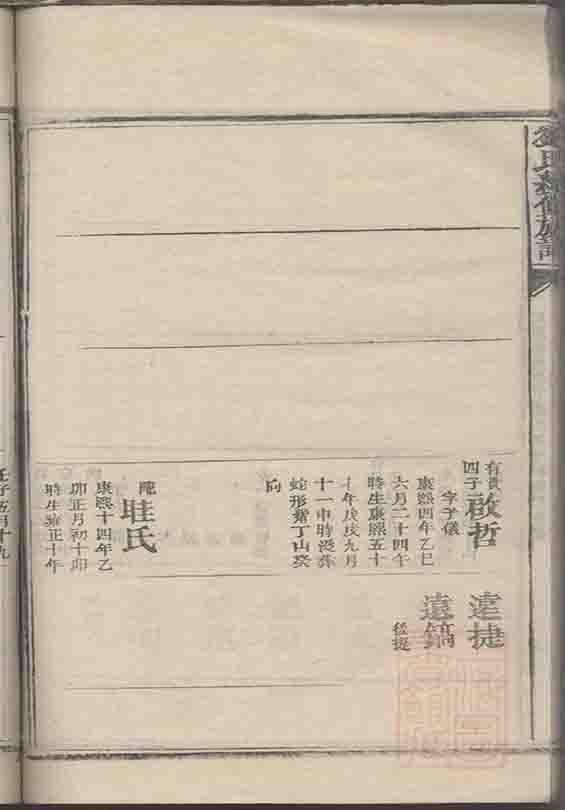 氏續修族譜
有貴
四子
啟哲
字子儀
康熙四年乙巳
六月二十四午
時生康熙五十
七年戊戌九月
十一申時歿葬
蛇形蒼丁山癸
向
陇
眭氏
康熙十四年乙
卯正月初十卯
時生雍正十年
遠捷
遠鎬